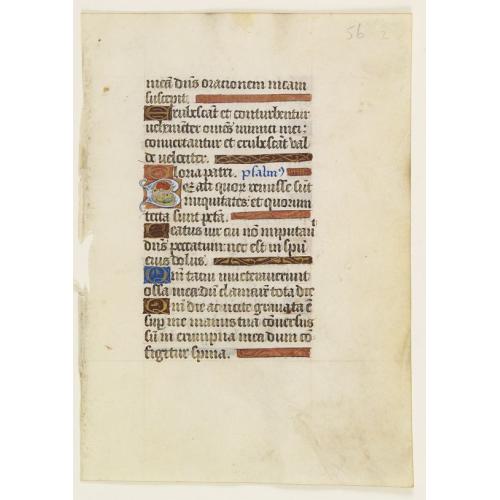 56 2
meā dñs orationem meam
suscepit.
Erubescāt et conturbentur
vehemēter om̄es inimici mei:
convertantur et erubescāt val
de velociter.
Gloria patri. psalm⁹
Beati quor̄ remisse sūt
iniquitates: et quorum
tecta sunt pctā.
Beatus vir cui nō imputavit
dñs peccatum: nec est in spū
eius dolus.
Qm̄ tacui inveteraverunt
ossa mea dū clamarē tota die
Qm̄ die ac nocte gravata ē
sup̄ me manus tua cōversus
sū in erumpna mea dum cō
figitur spina.